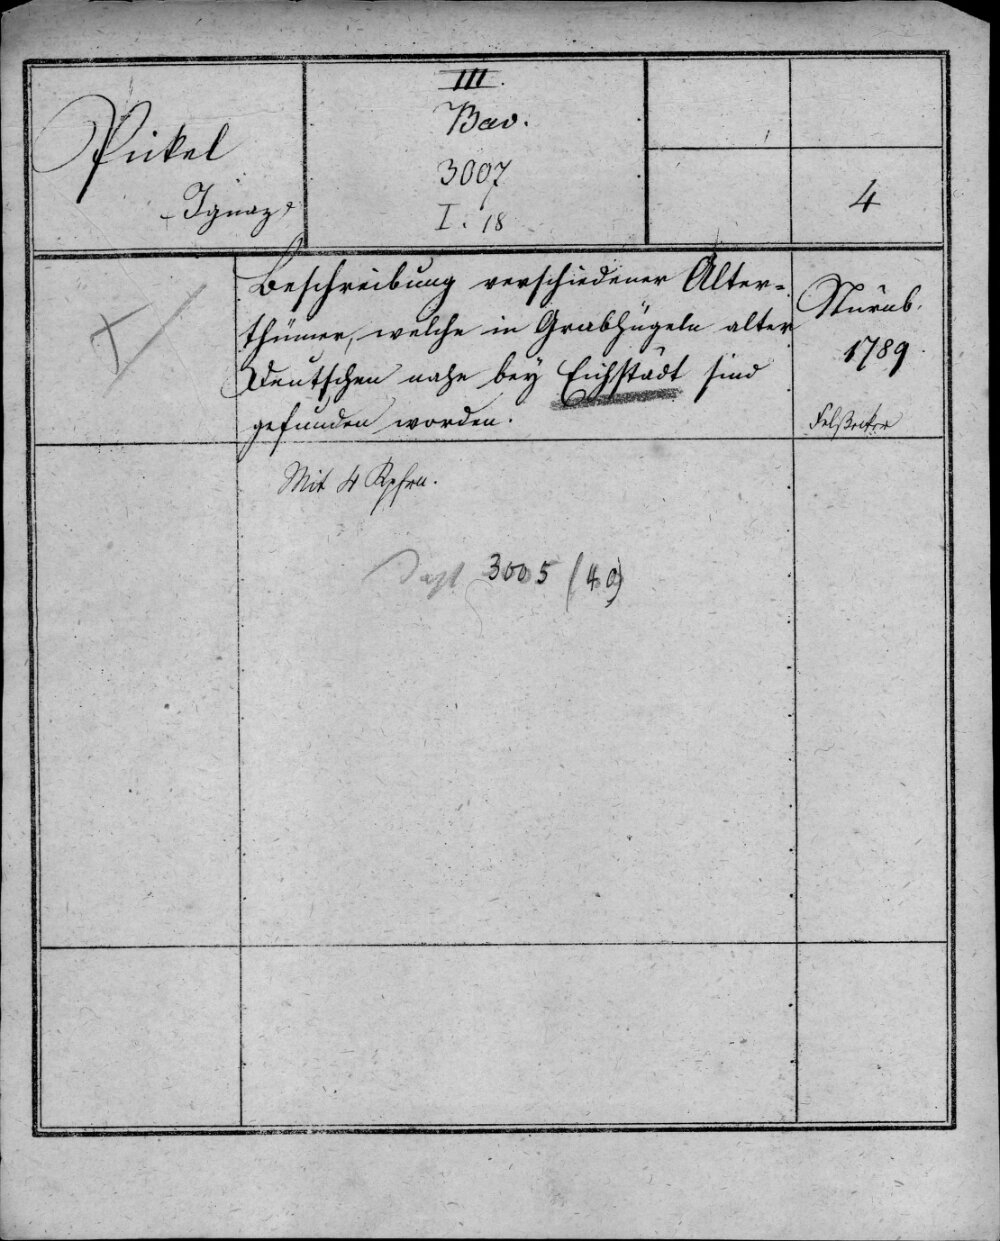 Pickel
Ignaz
III.
Bav.
3007
I. 18
4
Beschreibung verschiedener Alter-
thümer, welche in Grabhügeln alter
Deutschen nahe bey Eichstädt sind
gefunden worden.
Nürnb.
1789.
Felßecker
Mit 4 Kpfrn.
3005 (40)